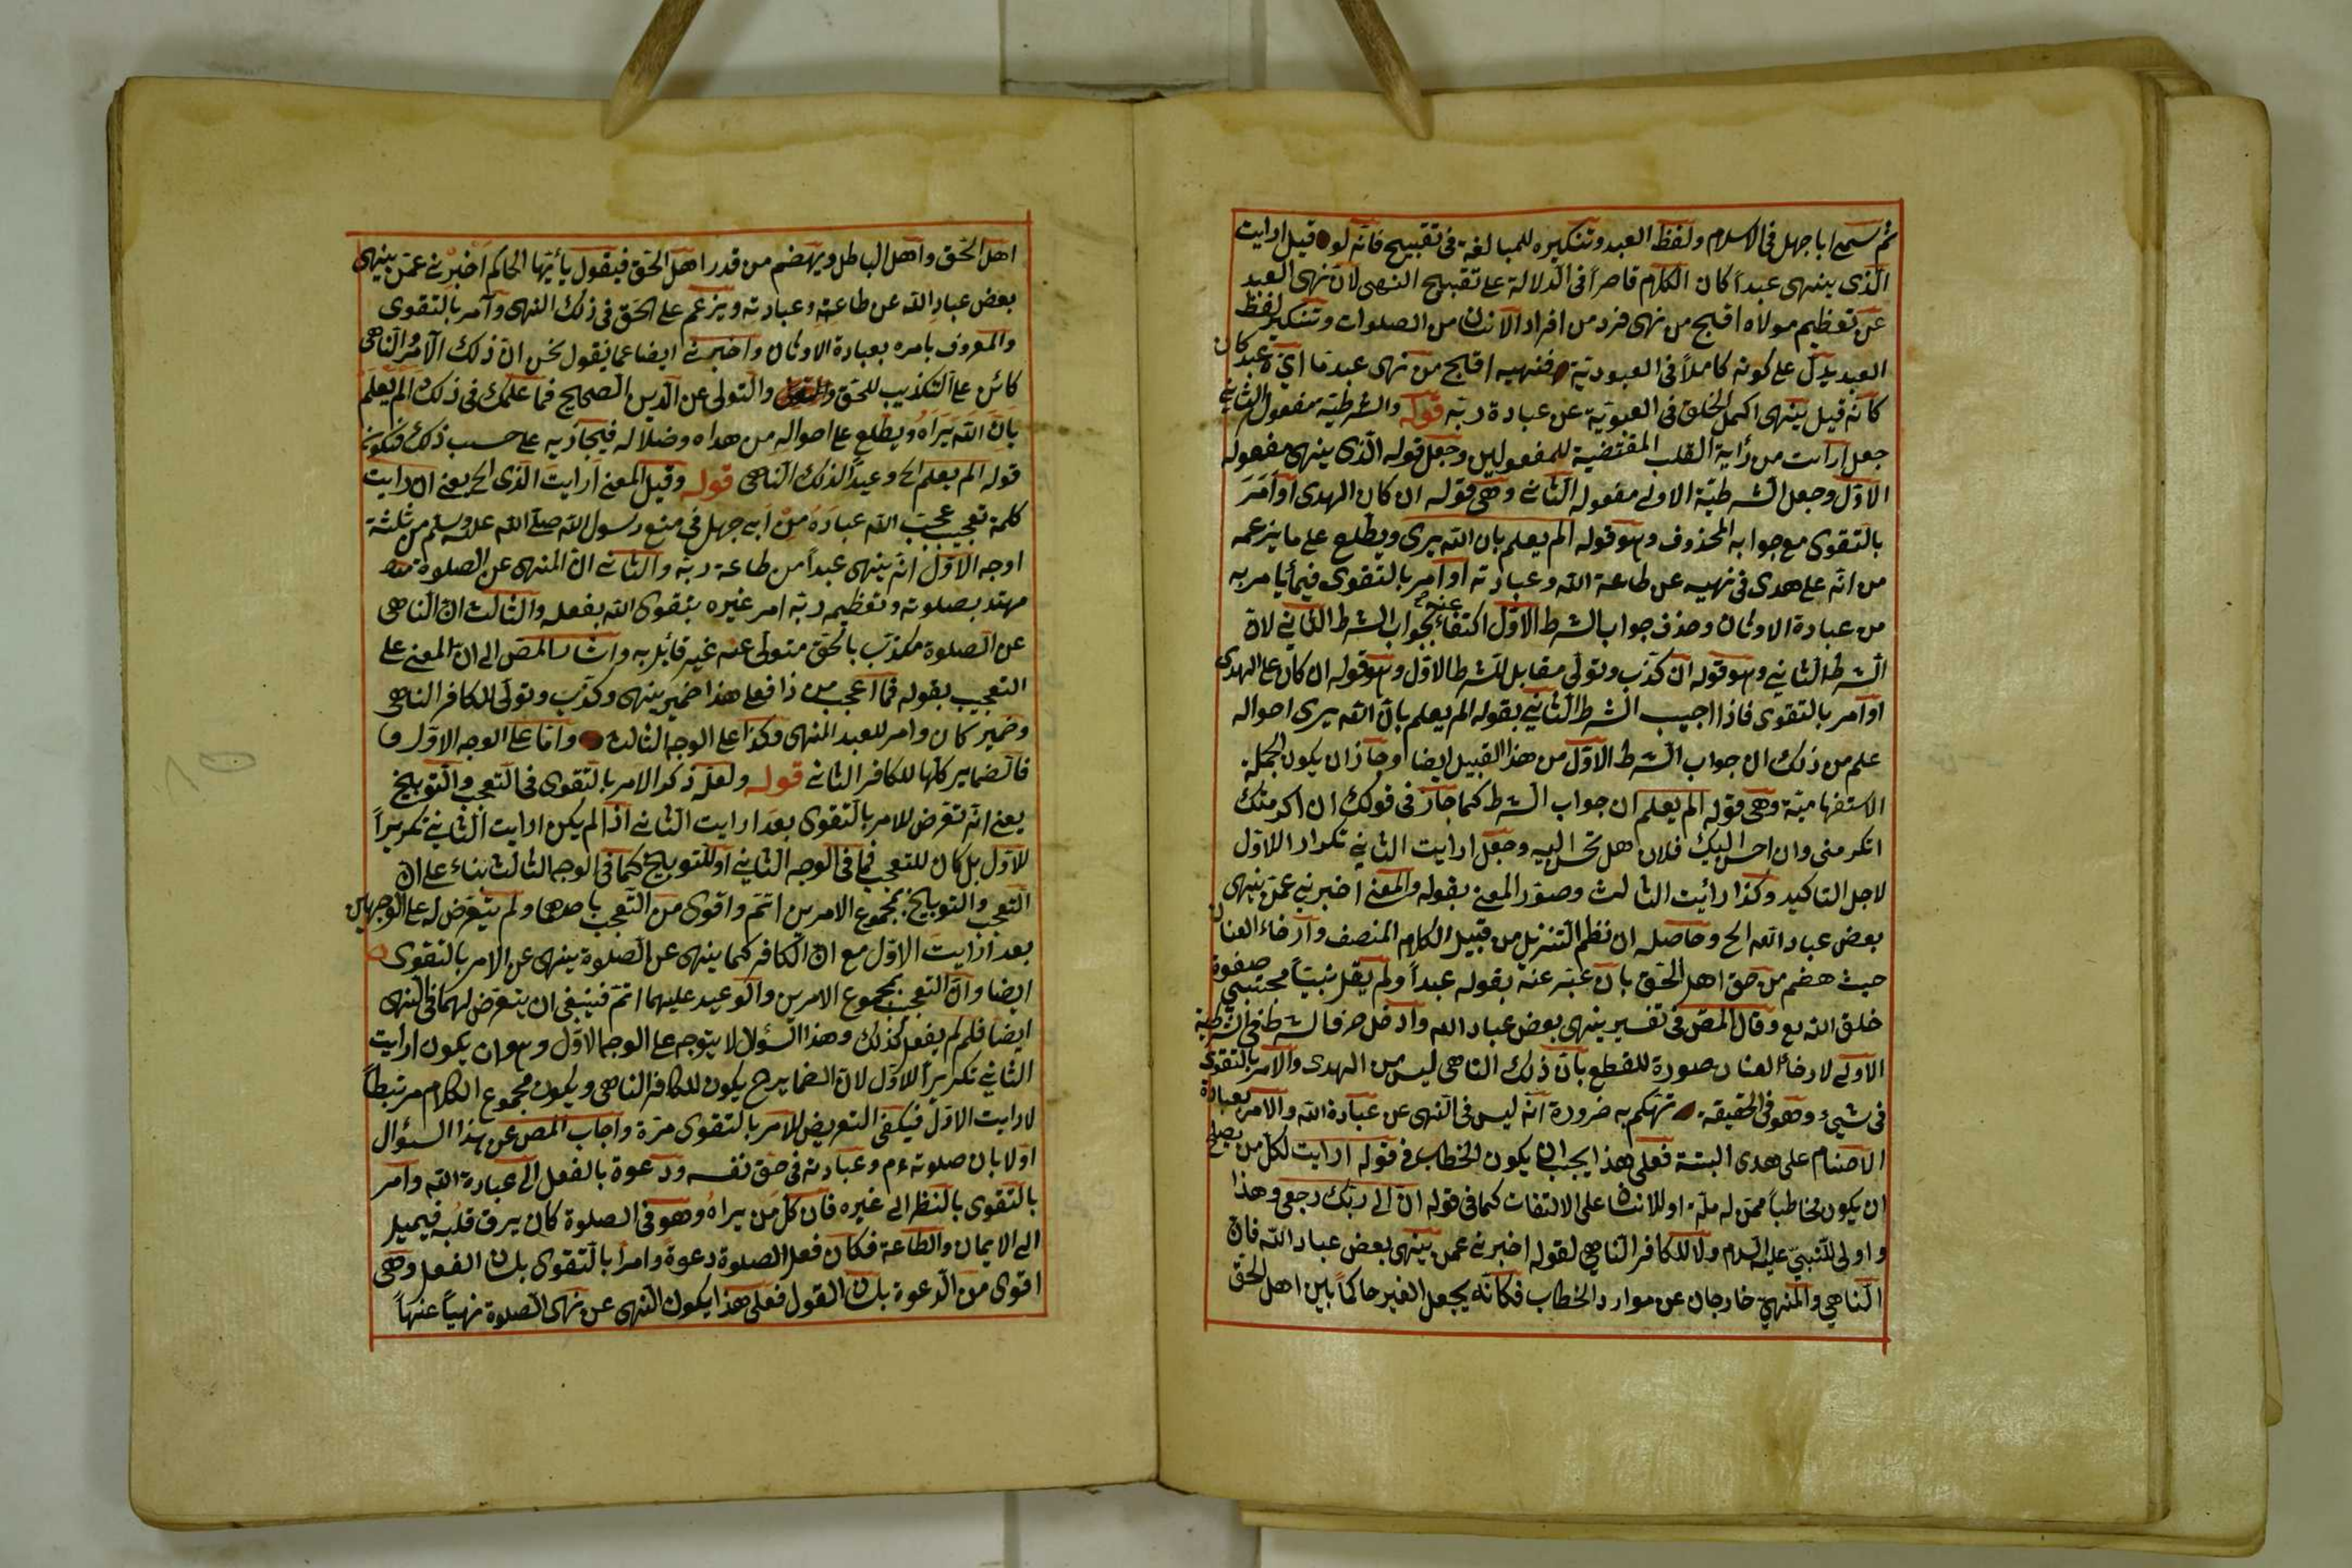 ثم سمى ابا جهل فى الاسلام ولفظ العبد وتنكيره للمبالغة فى تقبيح فانه لو قيل ارايت
الذى ينهى عبدا كان الكلام قاصرا فى الدلالة على تقبيح النهى لان نهى العبد
عن تعظيم مولاه اقبح من نهى فرد من افراد الانسان من الصلوات وتنكير لفظ
العبد يدل على كونه كاملا فى العبودية فنهيه اقبح من نهى عبد ما اى عبد كان
كانه قيل ينهى اكمل الخلق فى العبوية عن عبادة ربه قوله والشرطية مفعول الثانى
جعل ارايت من رأية القلب المقتضية للمفعولين وجعل قوله الذى ينهى مفعوله
الاول وجعل الشرطية الاولى مفعوله الثانى وهى قوله ان كان الهدى او امر
بالتقوى مع جوابه المحذوف وهو قوله الم يعلم بان الله يرى ويطلع على ما يزعمه
من انه على هدى فى نهيه عن طاعة الله وعبادته او امر بالتقوى فيما يامر به
من عبادة الاوثان وحذف جواب الشرط الاول اكتفاء عنه بجواب الشرط الثانى لان
الشرط الثانى وهو قوله ان كذب وتولى مقابل للشرط الاول وهو قوله ان كان على الهدى
او امر بالتقوى فاذا اجيب الشرط الثانى بقوله الم يعلم بان الله يرى احواله
علم من ذلك ان جواب الشرط الاول من هذا القبيل ايضا وجاز ان يكون الجملة
الاستفهامية وهى قوله الم يعلم ان جواب الشرط كما جاز فى قولك ان اكرمتك
اتكرمنى وان احسن اليك فلان هل تحسن اليه وجعل ارايت الثانى تكرارا للاول
لاجل التاكيد وكذا رأيت الثالث وصور المعنى بقوله والمعنى اخبرنى عمن ينهى
بعض عباد الله الخ وحاصله ان نظم التنزيل من قبيل الكلام المنصف وارخاء العنان
حيث هضم من حق اهل الحق بان عبر عنه بقوله عبدا ولم يقل نبيا مجتبى صفوة
خلق الله تع وقال المص فى تفسير ينهى بعض عباد الله وادخل حرف الشرط فى الشرطية
الاولى لارخاء العنان صورة للقطع بان ذلك الناهى ليس من الهدى والامر بالتقوى
فى شىء وهو فى الحقيقة تهكم به ضرورة انه ليس فى النهى عن عبادة الله والامر بعبادة
الاصنام على هدى البتة فعلى هذا يجب ان يكون الخطاب فى قوله ارايت لكل من يصلح
ان يكون مخاطبا ممن له او للانسان على الالتفات كما فى قوله ان الى ربك رجعى وهذا
واولى للنبى عليه السلام ولا للكافر الناهى لقوله اخبرنى عمن ينهى بعض عباد الله فان
الناهى والمنهى خارجان عن موارد الخطاب فكانه يجعل الغير حاكما بين اهل الحق
اهل الحق واهل الباطل ويهضم من قدر اهل الحق فيقول يأيها الحاكم اخبرنى عمن ينهى
بعض عباد الله عن طاعته وعبادته ويزعم على الحق فى ذلك النهى وآمر بالتقوى
والمعروف بامره بعبادة الاوثان واخبرنى ايضا عما نقول نحن ان ذلك الآمر والناهى
كائن على التكذيب للحق والتولى عن الدين الصحيح فما علمك فى ذلك الم يعلم
بان الله يراه ويطلع على احواله من هداه وضلاله فيجازيه على حسب ذلك فيكون
قوله الم يعلم الخ وعيدا لذلك الناهى قوله وقيل المعنى ارايت الذى الخ يعنى ان رايت
كلمة تعجيب عجب الله عباده من ابى جهل فى منع رسول الله صلى الله عليه وسلم من ثلثة
اوجه الاول انه ينهى عبدا من طاعة ربه والثانى ان المنهى عن الصلوة
مهتد بصلوته وتعظيمه ربه امر غيره بتقوى الله بفعله والثالث ان الناهى
عن الصلوة مكذب بالحق متولى عنه غير قائل به واشار المص الى ان المعنى على
التعجيب بقوله فما اعجب من ذا فعلى هذا ضمير ينهى وكذب وتولى للكافر الناهى
وضمير كان وامر للعبد المنهى وكذا على الوجه الثالث واما على الوجه الاول
فالضماير كلها للكافر الثانى قوله ولعله ذكر الامر بالتقوى فى التعجب والتوبيخ
يعنى انه تعرض للامر بالتقوى بعد ارايت الثانى اذا لم يكن ارايت الثانى تكريرا
للاول بل كان للتعجب كما فى الوجه الثانى او للتوبيخ كما فى الوجه الثالث بناء على ان
التعجب والتوبيخ بمجموع الامرين اتم واقوى من التعجب باحدهما ولم يتعرض له على الوجهين
بعد ارايت الاول مع ان الكافر كما ينهى عن الصلوة ينهى عن الامر بالتقوى
ايضا وان التعجب بمجموع الامرين والوعيد عليهما اتم فينبغى ان يتعرض لهما فى النهى
ايضا فلم لم يفعل كذلك وهذا السؤال لا يتوجه على الوجه الاول وهو ان يكون ارايت
الثانى تكريرا للاول لان الضماير ح يكون للكافر الناهى ويكون مجموع الكلام مرتبطا
لارايت الاول فيكفى التعريض للامر بالتقوى مرة واجاب المص عن هذا السؤال
اولا بان صلوته ءم وعبادته فى حق نفسه ودعوة بالفعل الى عبادة الله وامر
بالتقوى بالنظر الى غيره فان كل من يراه وهو فى الصلوة كان يرق قلبه فيميل
الى الايمان والطاعة فكان فعل الصلوة دعوة وامرا بالتقوى بلسان الفعل وهى
اقوى من الدعوة بلسان القول فعلى هذا يكون النهى عن نهى الصلوة نهيا عنها